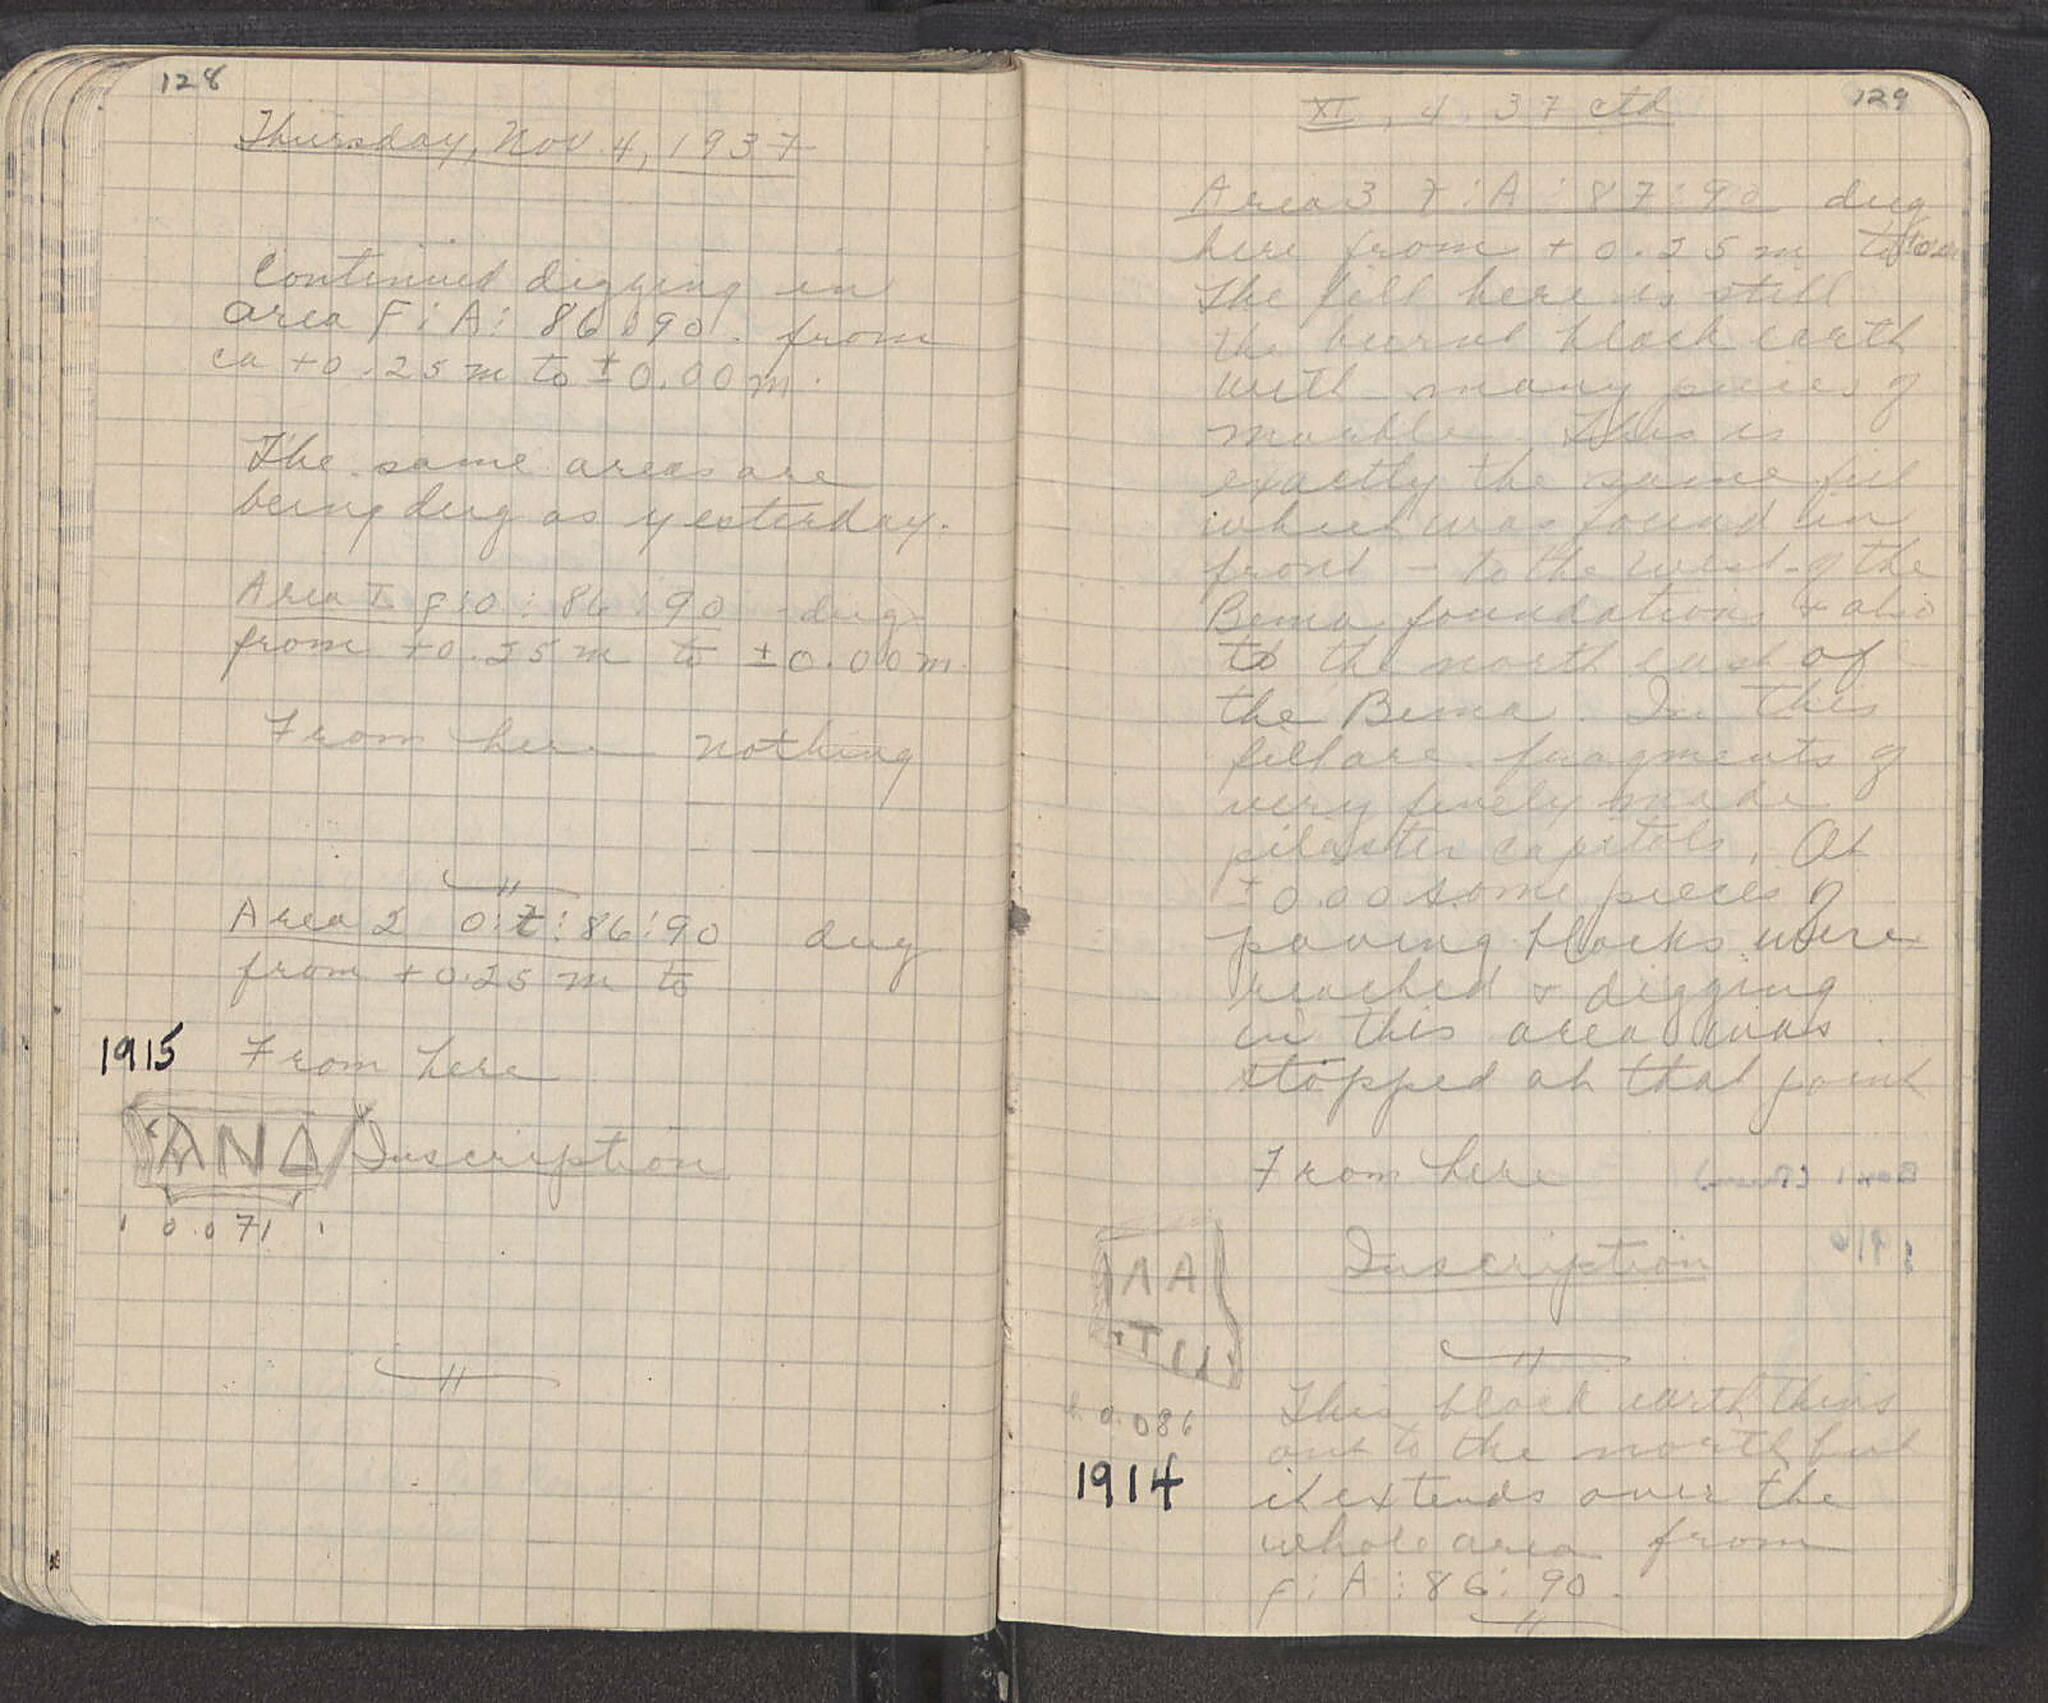 128
Thursday, Nov. 4, 1937
Continued digging in
area F:A: 86:90. from
ca +0.25 m to ±0.00 m.
The same areas are
being dug as yesterday.
Area I F:O: 86:90 dug
from +0.25 m to ±0.00 m.
From here nothing
Area 2 O:T: 86:90 dug
from +0.25 m to
1915 From here
ΑΝΔ Inscription
0.071
129
XI. 4. 37 ctd
Area 3 T:A: 87:90 dug
here from +0.25 m to
The fill here is still
the burnt black earth
with many pieces of
marble. This is
exactly the same fill
which was found in
front - to the west - of the
Bema foundations & also
to the north east of
the Bema. In this
fill are fragments of
very finely made
pilaster capitals. At
±0.00 some pieces of
paving blocks were
reached & digging
in this area was
stopped at that point
From here
AA
Inscription
T
0.086
1914
This black earth thins
out to the north but
it extends over the
whole area from
F:A: 86:90.